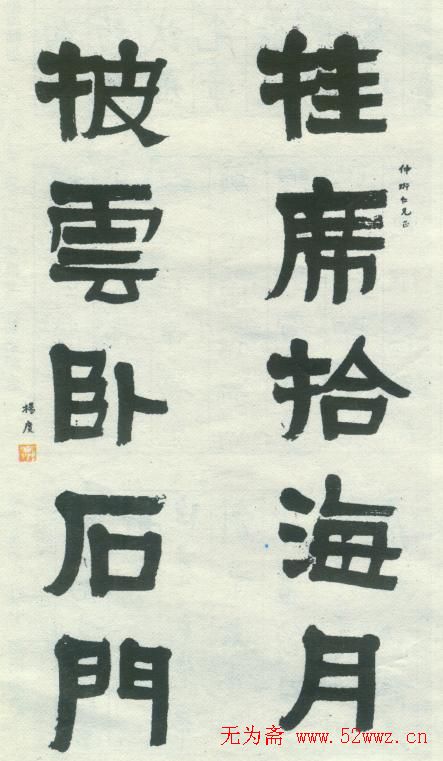 挂席拾海月
仲仁兄正
披雲卧石門
楊度
无为斋 www.52wwz.cn